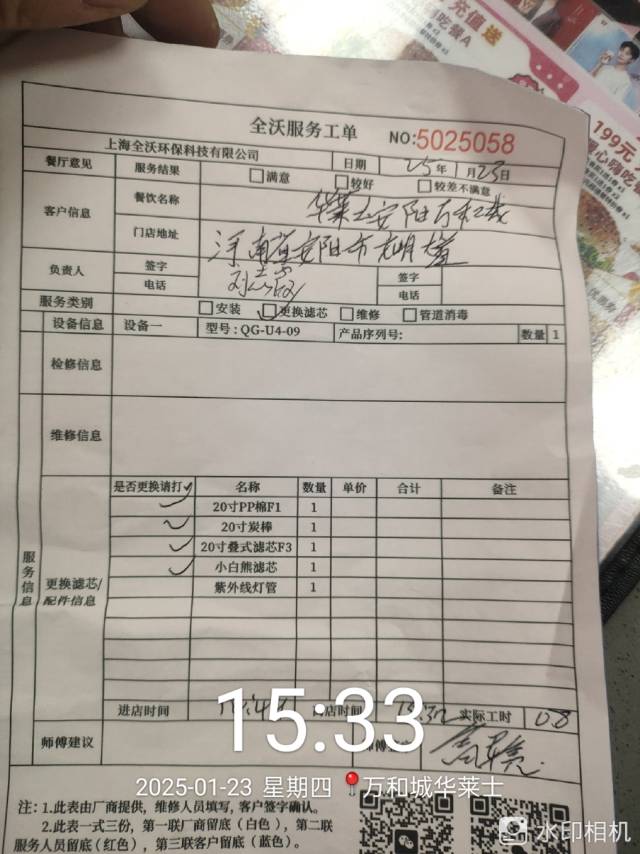 充值送
199元
全沃服务工单 NO:5025058
上海全沃环保科技有限公司
餐厅意见 服务结果 日期 25年1月23日
满意 较好 较差不满意
客户信息 餐饮名称 华莱士安阳万和城
门店地址 河南省安阳市文明大道
负责人 签字 签字
电话 电话
服务类别 安装 更换滤芯 维修 管道消毒
设备信息 设备一 型号:QG-U4-09 产品序列号: 数量 1
检修信息
维修信息
服务信息
更换滤芯/配件信息
是否更换请打✓ 名称 数量 单价 合计 备注
✓ 20寸PP棉F1 1
✓ 20寸炭棒 1
✓ 20寸叠式滤芯F3 1
✓ 小白熊滤芯 1
紫外线灯管 1
进店时间 时间 实际工时 0.8
师傅建议
15:33
2025-01-23 星期四 万和城华莱士
注:1.此表由厂商提供,维修人员填写,客户签字确认。
2.此表一式三份,第一联厂商留底(白色),第二联
服务人员留底(红色),第三联客户留底(蓝色)。
水印相机